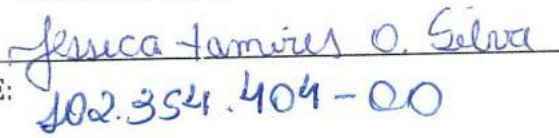 Jessica Tamires O. Silva
E: 102.354.404-00